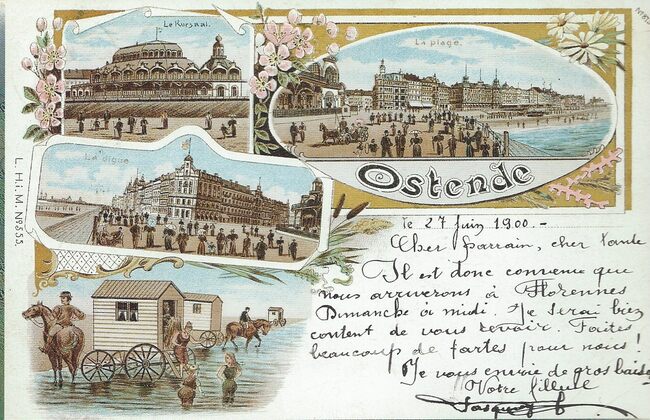 Le Kursaal.
La plage.
La digue
Ostende
L.H.i.M. No 855.
le 27 juin 1900. -
Cher parrain, cher tante
Il est donc convenu que
nous arriverons à Florennes
Dimanche à midi. Je serai bien
content de vous revoir. Faites
beaucoup de tartes pour nous!
Je vous envoie de gros baisers
Votre filleul